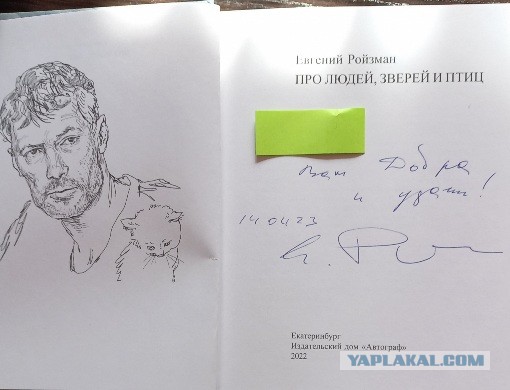 Евгений Ройзман
ПРО ЛЮДЕЙ, ЗВЕРЕЙ И ПТИЦ
Вам Добра
и удачи!
14 04 23
Екатеринбург
Издательский дом «Автограф»
2022
YAPLAKAL.COM